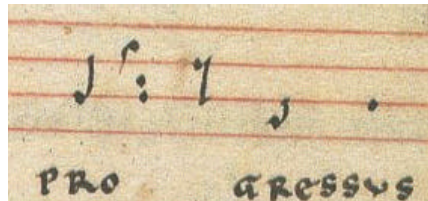 PRO GRESSVS